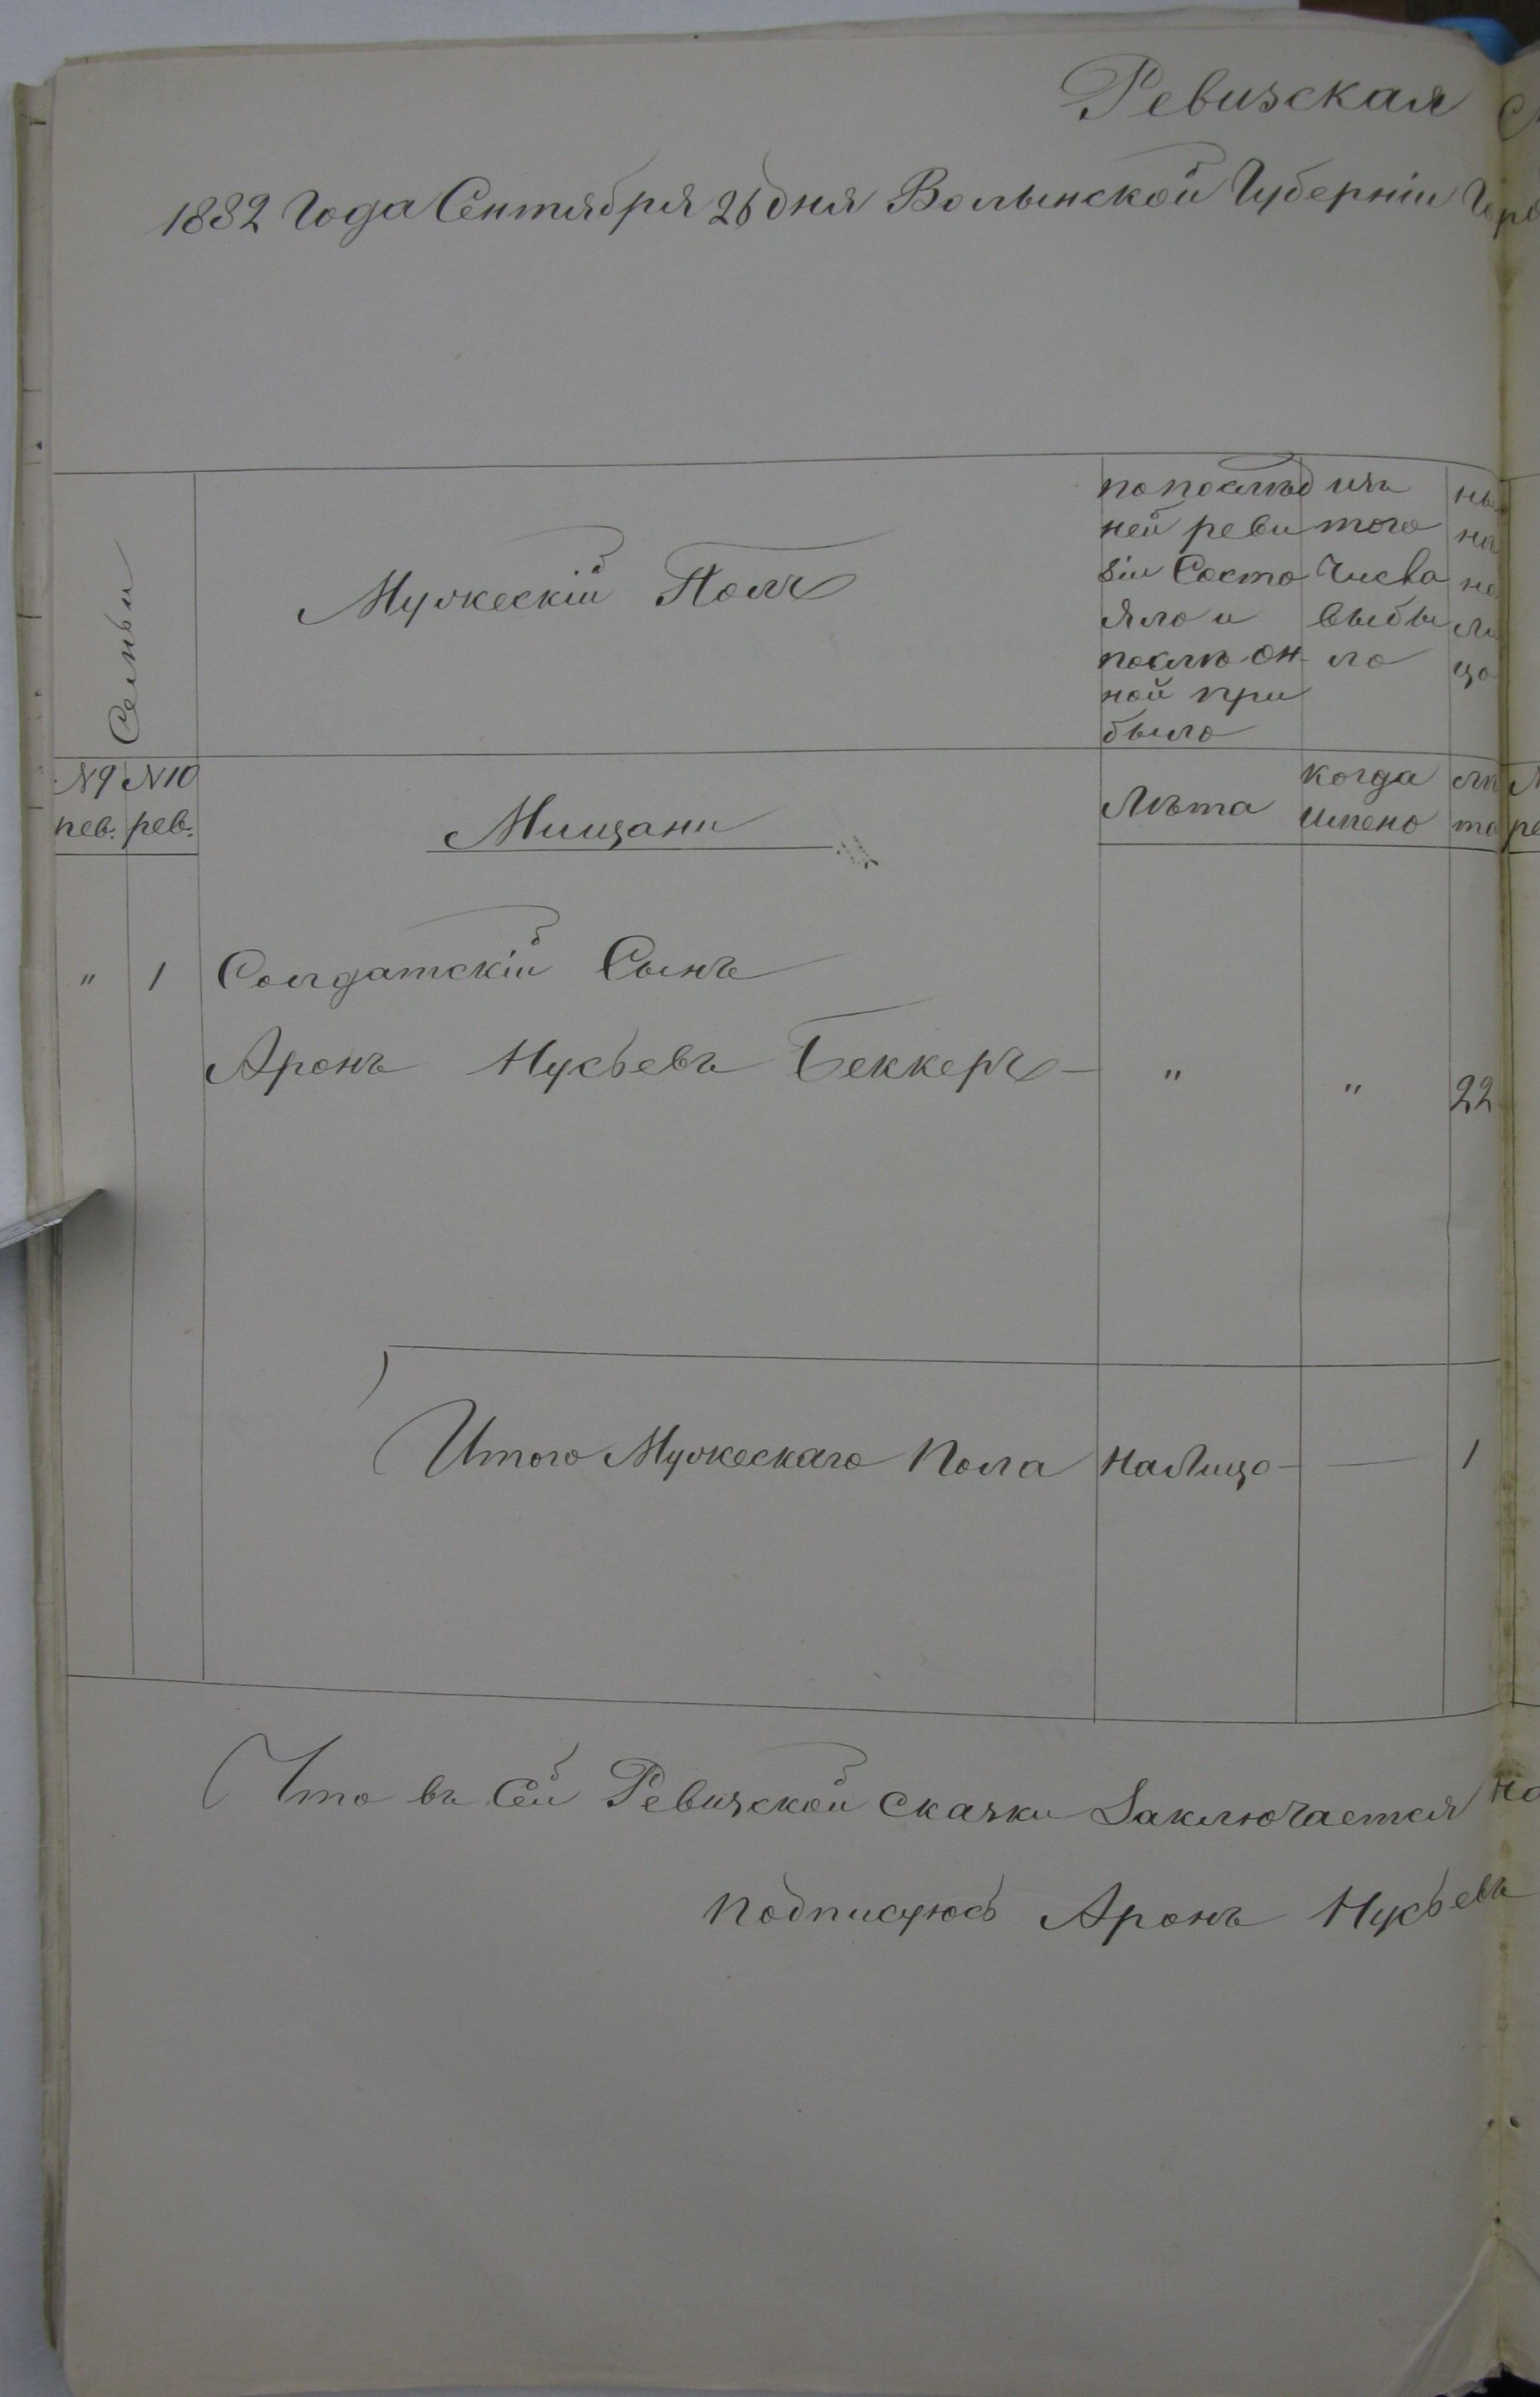 Ревизская
1882 Года Сентября 26 дня Волынской Губерніи
Семьи
Мужескій Полъ
попослѣд
ней реви
зіи Состо
яло и
послѣ он
ной при
было
изъ
того
Числа
выбы
ло
ны
на
ли
цо
№9 №10
рев. рев.
Мищани
Лѣта
когда
имено
лѣ
та
" 1 Солдатскій Сынъ
Аронъ Нусьевъ Беккеръ — " " 22
Итого Мужескаго Пола наЛицо — — 1
Что въ Сей Ревизской Сказки Заключается
подписуюсь Аронъ Нусьевъ